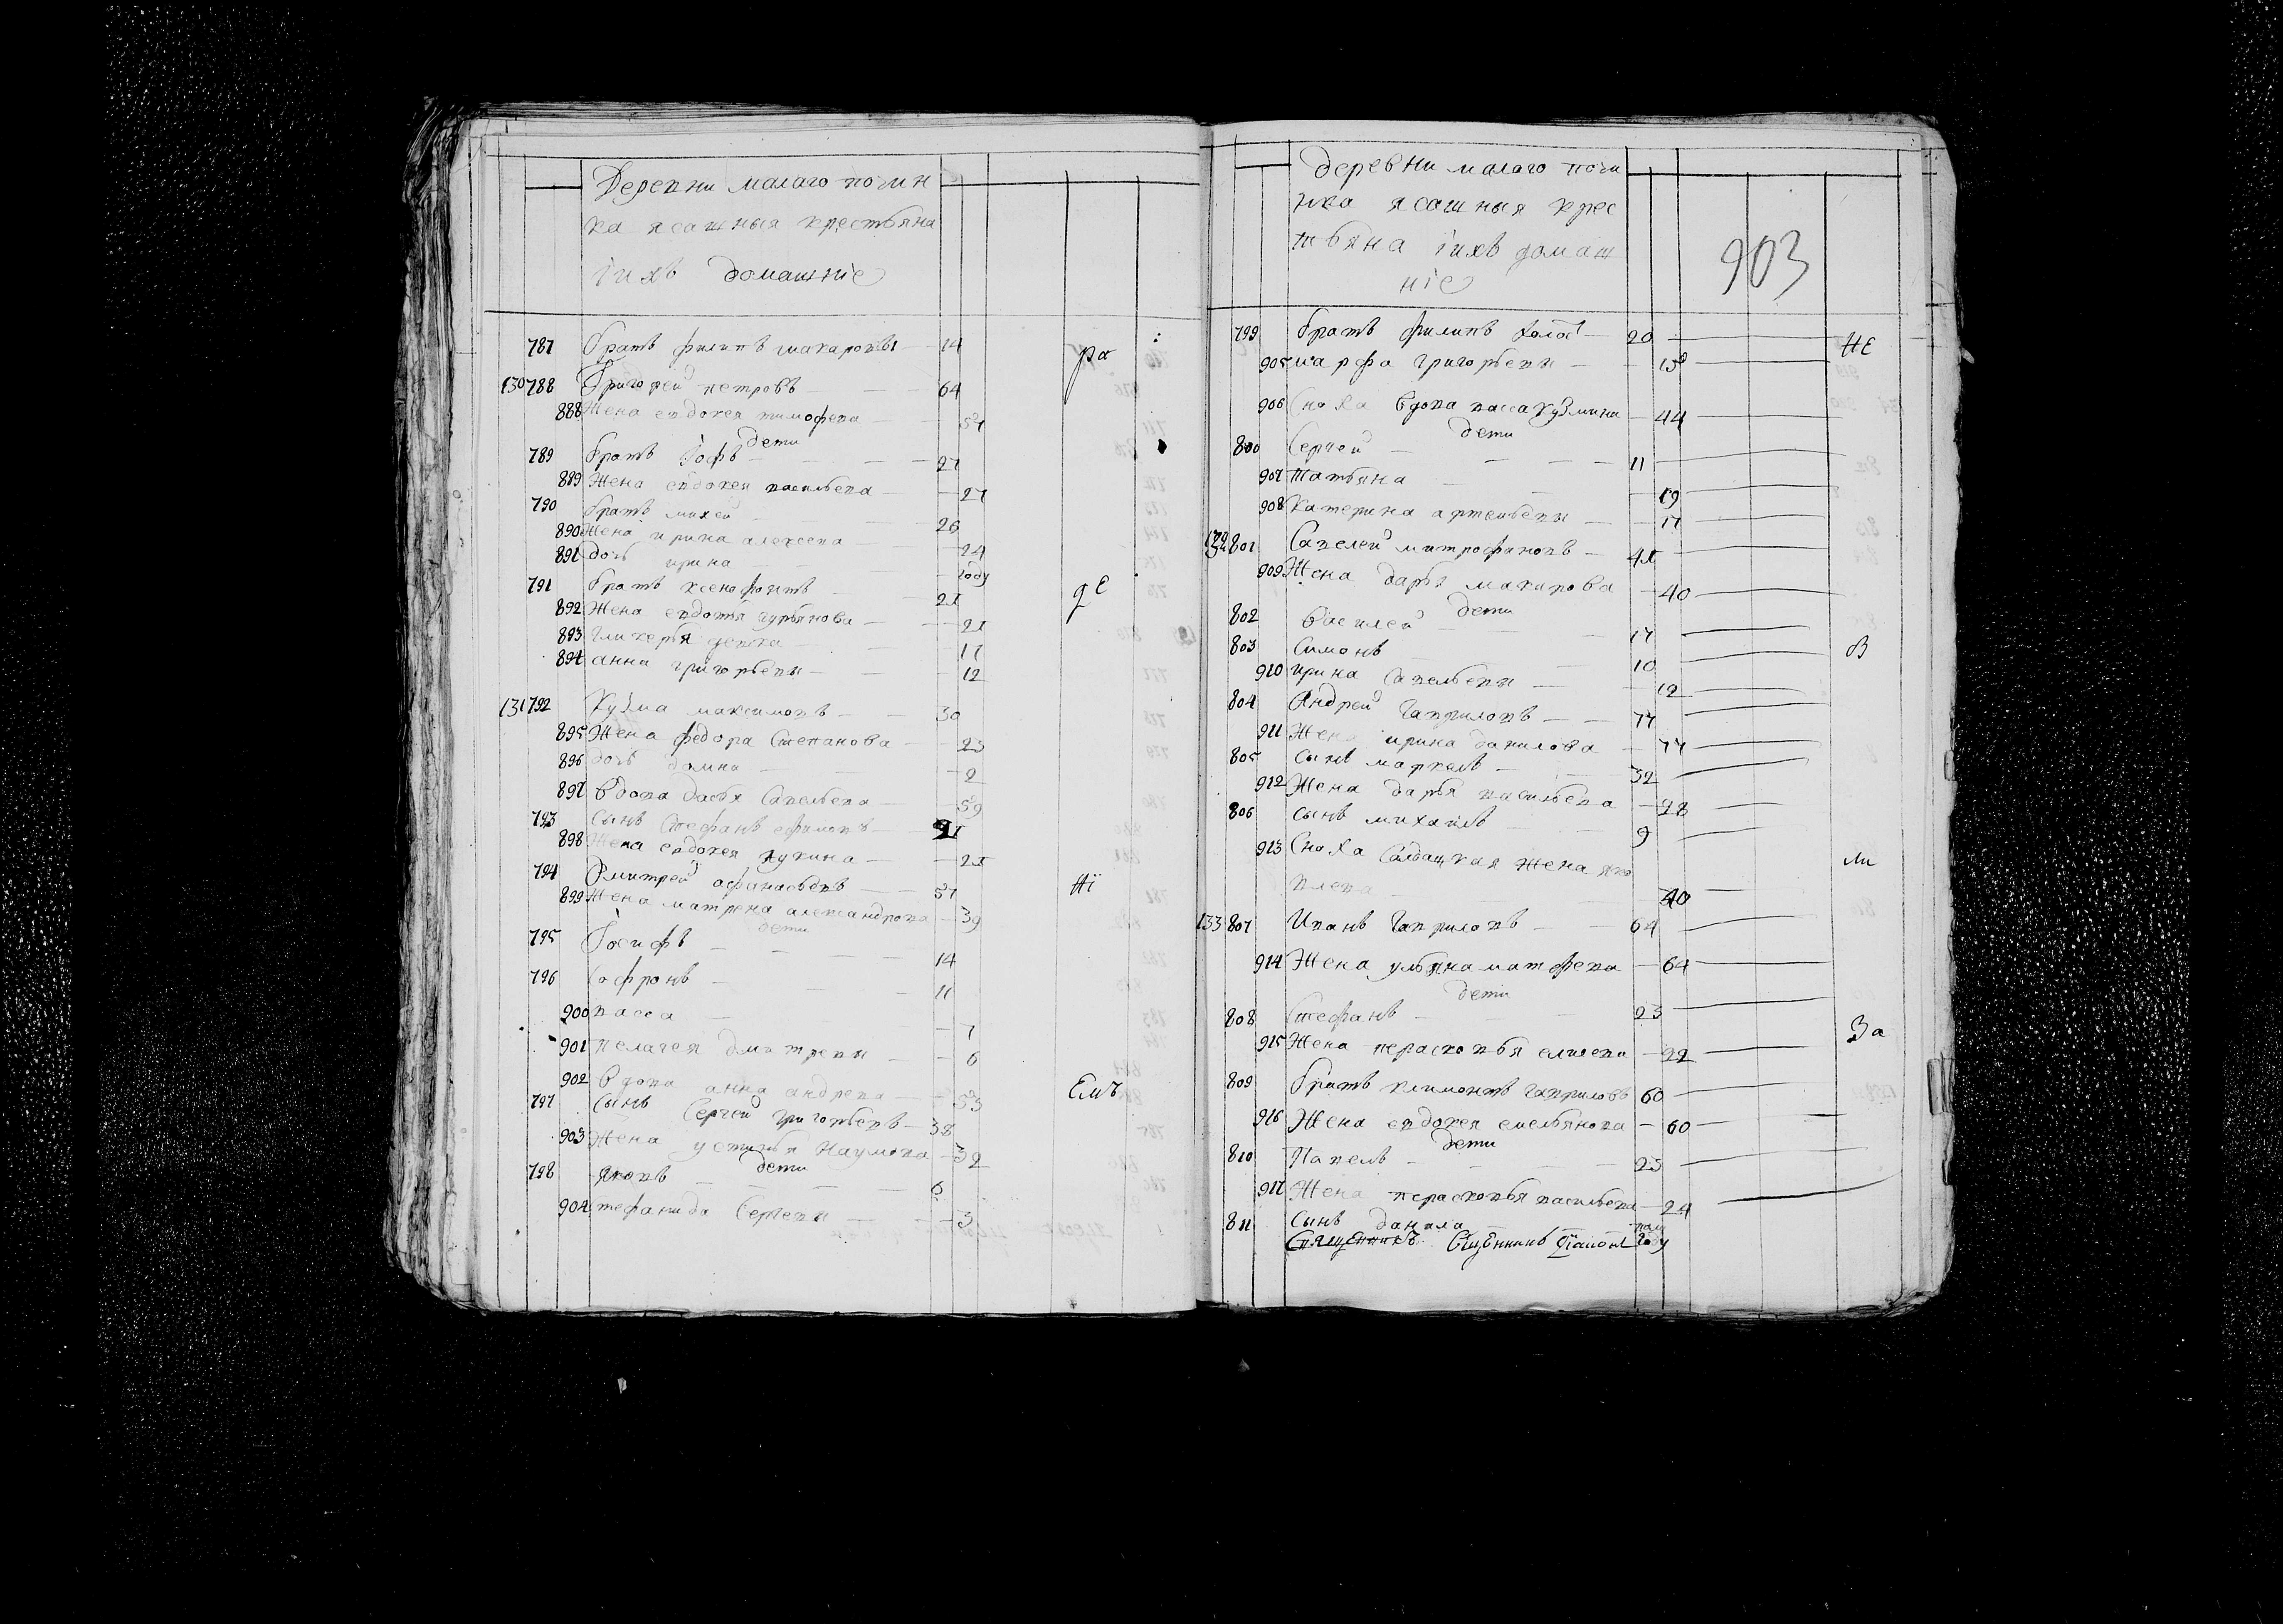 Деревни малаго почин
ка ясашныя крестьяна
ихъ домашніе
787 братъ филипъ макаровы 14
ра
130 788 Григорей петровъ 64
888 Жена евдокея тимофева 54
дети
789 братъ Іофъ 27
889 Жена евдокея васильева 27
790 братъ михей 26
890 Жена ирина алексева 24
891 дочь ирина году
791 братъ ксенофонтъ 21
де
892 Жена евдотья гурьянова 21
893 гликерья девка 17
894 анна григорьевы 12
131 792 Кузма максимовъ 30
895 Жена федора Степанова 23
896 дочь домна 2
897 вдова дарья Савельева 59
793 сынъ Стефанъ ефимовъ 21
898 Жена евдокея лукина 21
794 Дмитрей афанасьевъ 37
ні
899 Жена матрена александрова 39
дети
795 Іосифъ 14
796 Софронъ 11
900 васса 7
901 пелагея дмитревы 6
902 вдова анна андрева 53
Емъ
797 сынъ Сергей григорьевъ 38
903 Жена устинья Наумова 32
дети
798 яковъ 6
904 тефанида Сергевы 3
деревни малаго почи
нка ясашныя крес
тьяна ихъ домаш
ніе
903
799 братъ филипъ холос 20
НЕ
905 марфа григорьевы 18
906 Сноха вдова васса кузмина 44
дети
800 Сергей 11
907 татьяна 19
908 катерина артемьевы 17
132 801 Савелей митрофановъ 41
909 Жена дарья макарова 40
дети
802 василей 17
803 Симонъ 10
В
910 ирина Савельевы 12
804 Андрей Гавриловъ 77
911 Жена ирина данилова 77
805 сынъ маркелъ 32
912 Жена дарья васильева 28
806 сынъ михаилъ 9
913 Сноха Салдацкая Жена яко
ли
влева 40
133 807 Иванъ Гавриловъ 64
914 Жена ульяна матфева 64
дети
808 Стефанъ 23
За
915 Жена парасковья елисева 22
809 братъ климонтъ гавриловъ 60
916 Жена евдокея емельянова 60
дети
810 Павелъ 23
917 Жена парасковья васильева 24
811 сынъ данила полу
году